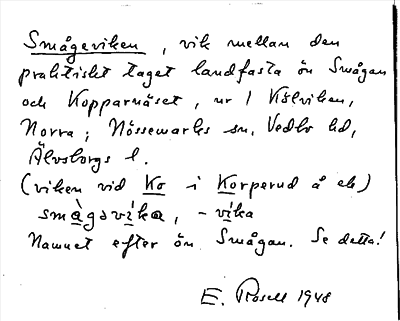 Smågeviken, vik mellan den
praktiskt taget landfasta ön Smågan
och Kopparnäset, ur / Kölviken,
Norra; Nössemarks sn, Vedbo hd,
Älvsborgs l.
(viken vid Ko i Korperud å ek)
småg​svika, -vika
Namnet efter ön Smågan. Se detta!
E. Rosell 1948